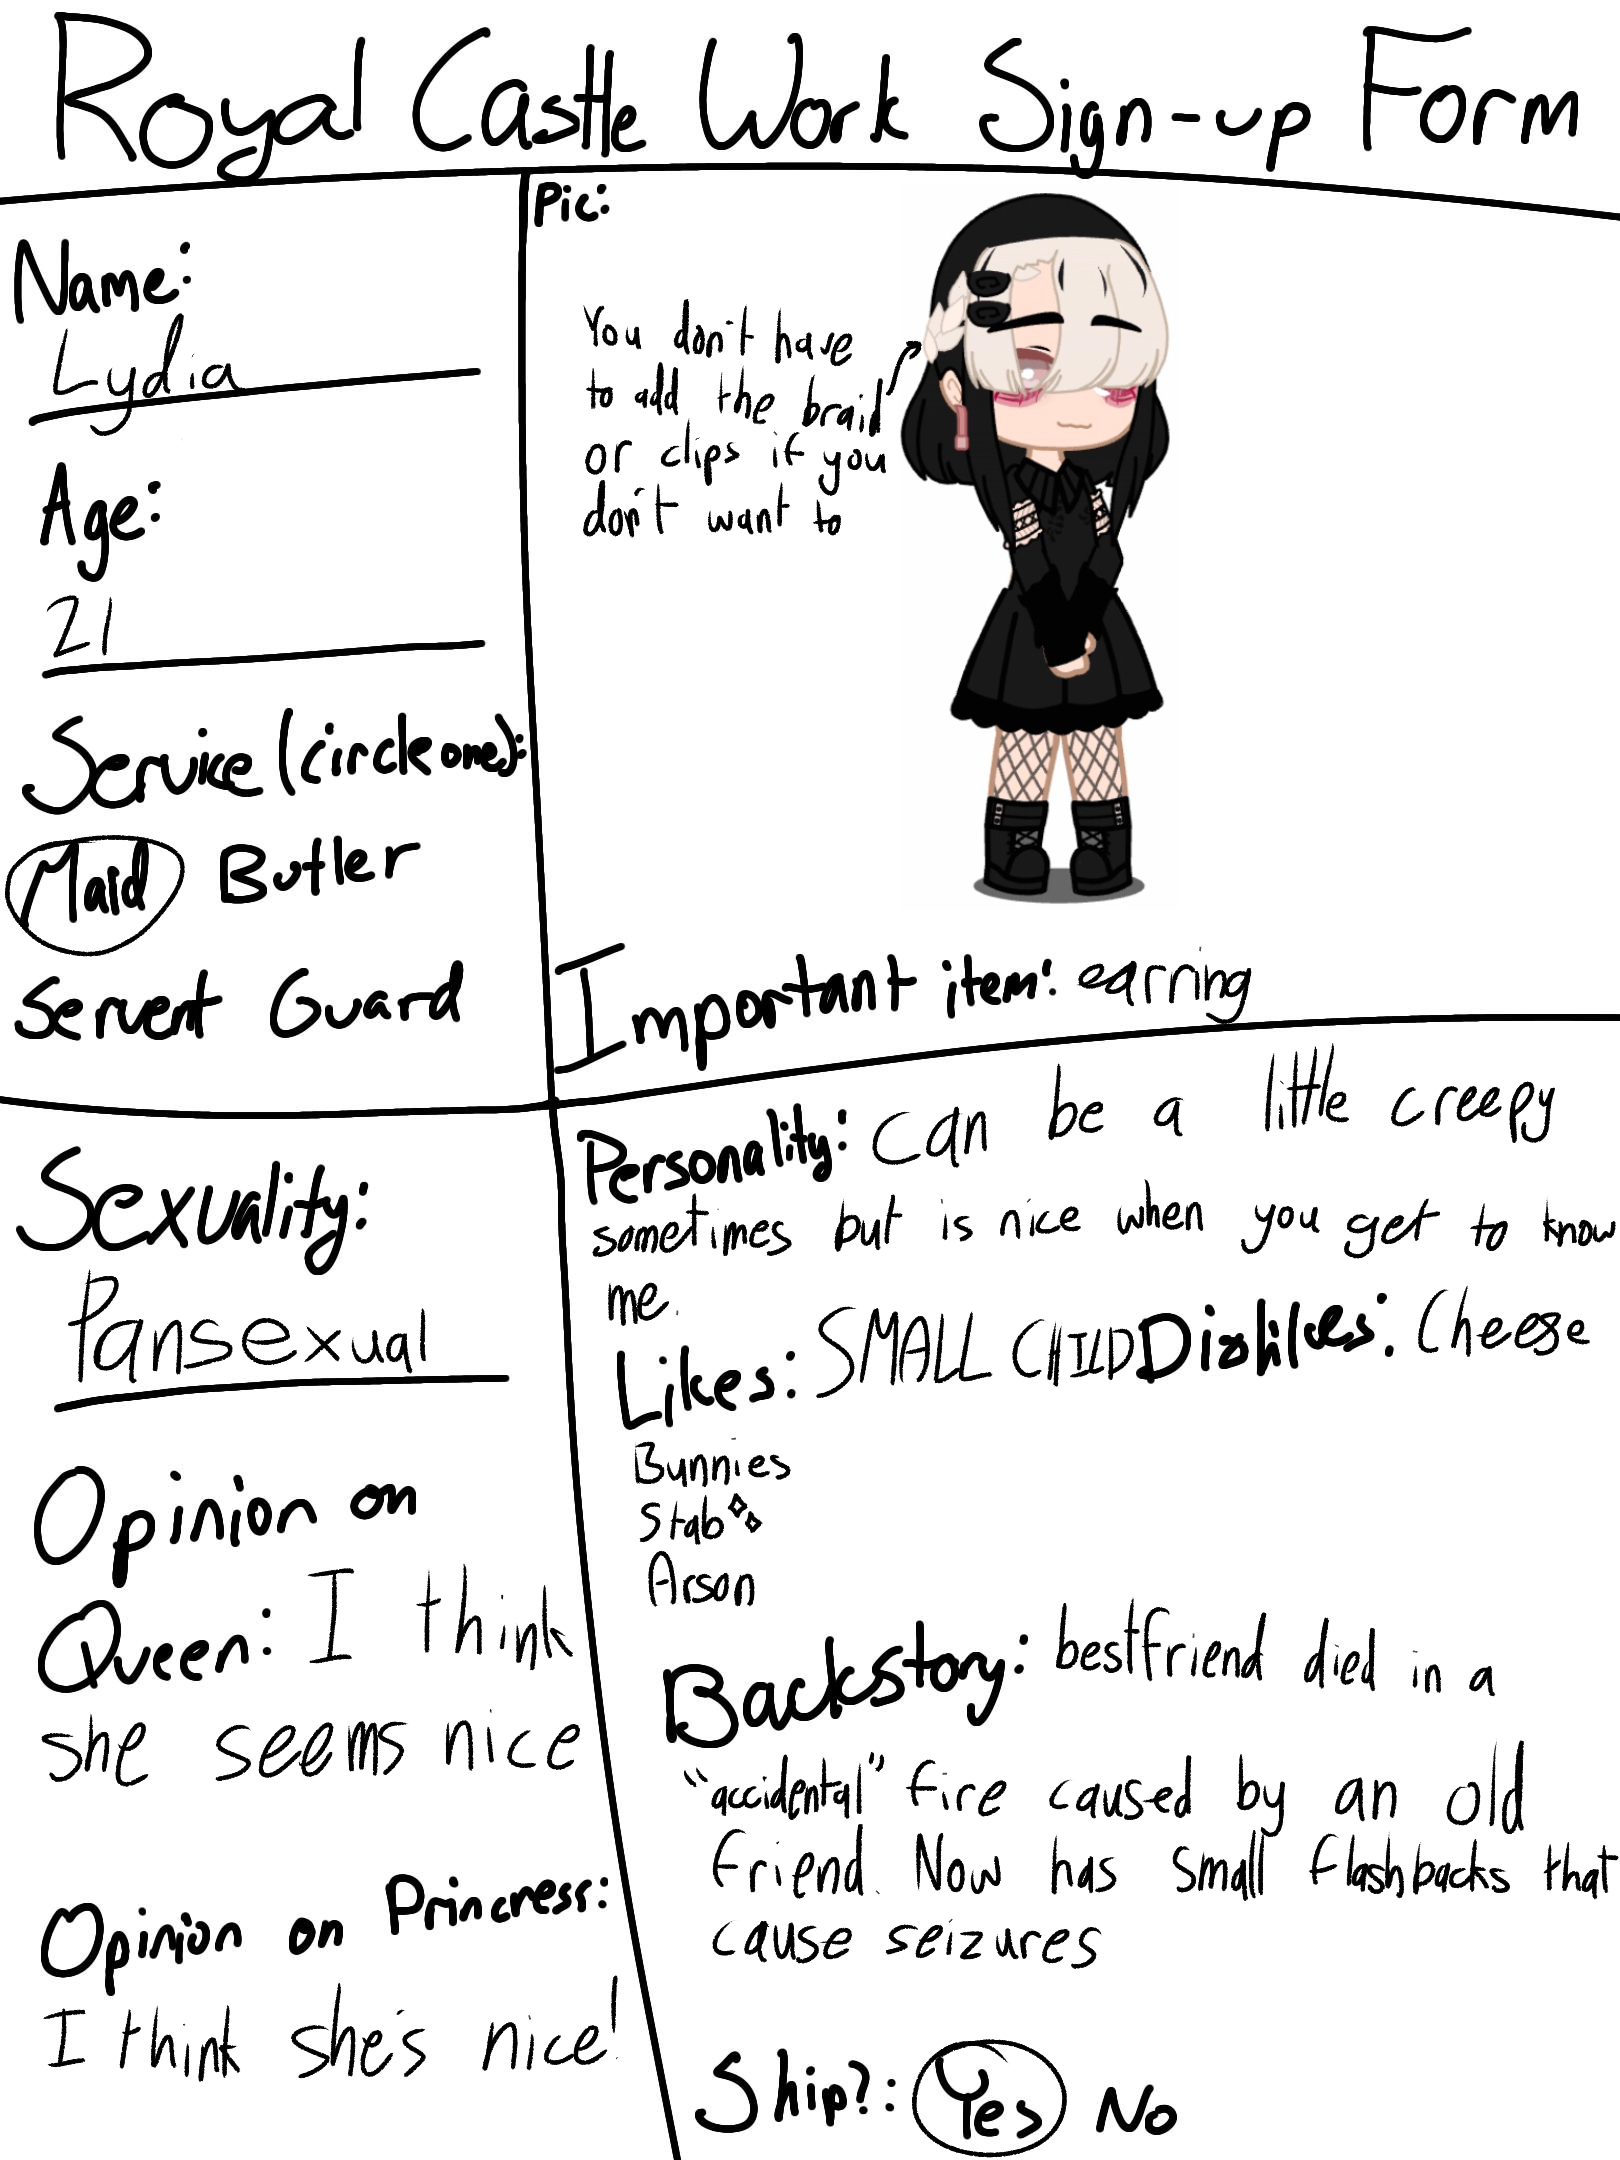 Royal Castle Work Sign-up Form
Name:
Lydia
Age:
21
Service (circle one):
Maid Butler
Servent Guard
Pic:
You don't have
to add the braid
or clips if you
don't want to
Important item: earring
Sexuality:
Pansexual
Opinion on
Queen: I think
she seems nice
Opinion on Princress:
I think she's nice!
Personality: can be a little creepy
sometimes but is nice when you get to know
me.
Likes: SMALL CHILD Dislikes: Cheese
Bunnies
Stab
Arson
Backstory: bestfriend died in a
"accidental" fire caused by an old
friend. Now has small flashbacks that
cause seizures
Ship?: Yes No